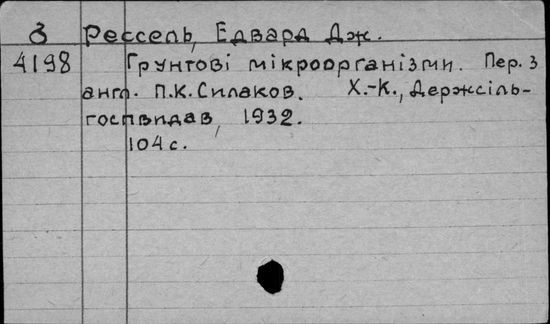 З Рессель, Едвард Дж.
4198 Ґрунтові мікроорганізми. Пер. з
англ. П.К.Силаков. Х.-К., Держсіль-
госпвидав, 1932.
104 с.